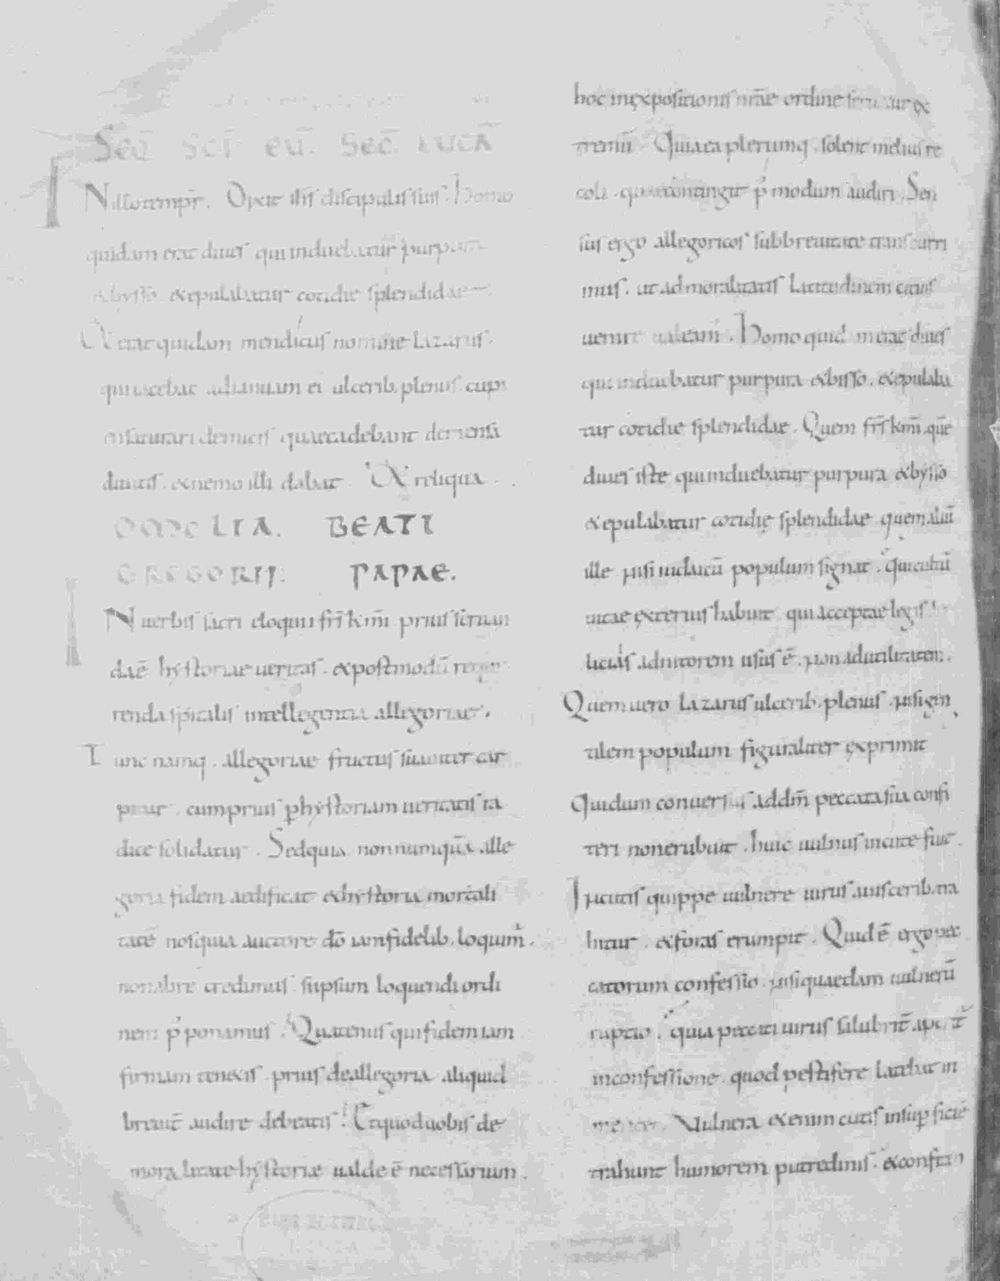 Secd̄ Sci eu. Sec̄ Lucā
IN illo tempr̄. Dixit ih̄s discipulis suis. Homo
quidam erat diues qui induebatur purpura
& bysso. & epulabatur cotidie splendidae
& erat quidam mendicus nomine Lazarus.
qui iacebat ad ianuam ei ulcerib. plenus cupi
ens saturari de micis quae cadebant de mensa
diuitis. & nemo illi dabat. & reliqua.
OMELIA. BEATI
GREGORII. PAPAE.
IN uerbis sacri eloquii fr̄s km̄i prius seruan
dae hystoriae ueritas. & postmodū requi
renda spitalis intellegentia allegoriae.
Tunc namq. allegoriae fructus suauiter car
pitur. cum prius p hystoriam ueritatis ra
dice solidatur. Sed quia nonnumquā alle
goria fidem aedificat & hystoria morali
tatē nos quia auctore dō iam fidelib. loquimr̄.
non ab re credimus. si ipsum loquendi ordi
nem p̄ponamus. Quatenus qui fidem iam
firmam tenetis. prius de allegoria aliquid
breuit̄ audire debeatis. Et quod uobis de
moralitate hystoriae ualde ē necessarium.
hoc in expositionis nr̄ae ordine seruatur ex
tremū. Quia ea plerumq. solent melius re
coli. quae contingit p̄modum audiri. Sen
sus ergo allegoricos sub breuitate transcurri
mus. ut ad moralitatis latitudinem citius
uenire ualeam̄. Homo quidam erat diues
qui induebatur purpura & bisso. & epulaba
tur cotidie splendidae. Quem fr̄s km̄i. quē
diues iste qui induebatur purpura & bysso
& epulabatur cotidie splendidae. quem aliū
ille nisi iudaicū populum signat. qui cultū
uitae exterius habuit. qui acceptae legis
liciis ad nitorem usus ē. non ad utilitatem.
Quem uero lazarus ulcerib. plenus. nisi gen
tilem populum figuraliter exprimit
Qui dum conuersus. ad dm̄ peccata sua confi
teri non erubuit. huic uulnus in cute fuit.
In cutis quippe uulnere uirus a uisceribus tra
hitur. & foras erumpit. Quid ē ergo pec
catorum confessio. nisi quaedam uulnerū
ruptio. quia peccati uirus salubrit̄ aperit̄
in confessione. quod pestifere latebat in
mente. Vulnera & enim cutis in sup̄ficiē
trahunt humorem putredinis. & confiten